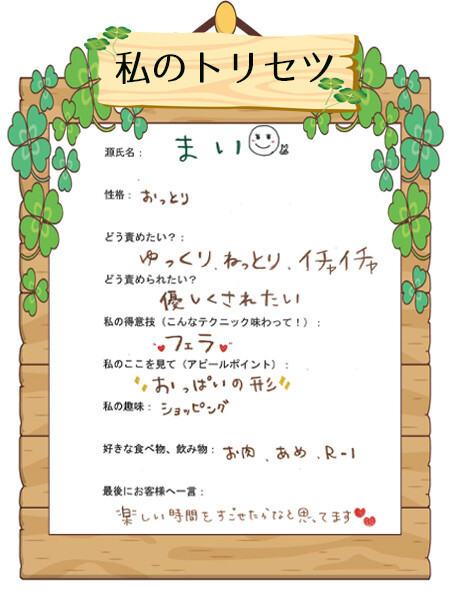 私のトリセツ
源氏名： まい
性格： おっとり
どう責めたい？：
ゆっくり、ねっとり、イチャイチャ
どう責められたい？
優しくされたい
私の得意技（こんなテクニック味わって！）：
フェラ
私のここを見て（アピールポイント）：
おっぱいの形
私の趣味： ショッピング
好きな食べ物、飲み物： お肉、あめ、R-1
最後にお客様へ一言：
楽しい時間をすごせたらなと思ってます